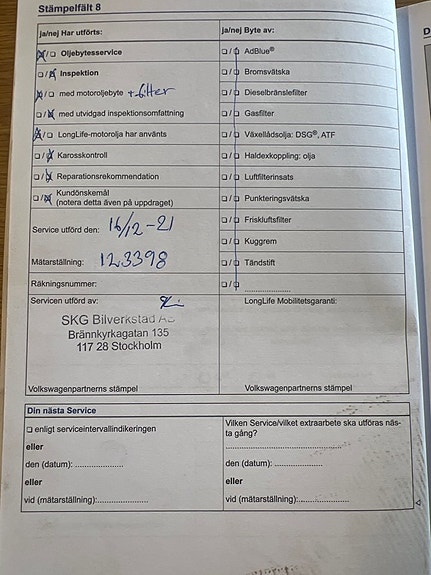 Stämpelfält 8
ja/nej Har utförts:
Oljebytesservice
Inspektion
med motoroljebyte + filter
med utvidgad inspektionsomfattning
LongLife-motorolja har använts
Karosskontroll
Reparationsrekommendation
Kundönskemål
(notera detta även på uppdraget)
Service utförd den: 16/12-21
Mätarställning: 123398
Räkningsnummer:
Servicen utförd av:
SKG Bilverkstad AB
Brännkyrkagatan 135
117 28 Stockholm
Volkswagenpartnerns stämpel
ja/nej Byte av:
AdBlue®
Bromsvätska
Dieselbränslefilter
Gasfilter
Växellådsolja: DSG®, ATF
Haldexkoppling: olja
Luftfilterinsats
Punkteringsvätska
Friskluftsfilter
Kuggrem
Tändstift
LongLife Mobilitetsgaranti:
Volkswagenpartnerns stämpel
Din nästa Service
enligt serviceintervallindikeringen
eller
den (datum):
eller
vid (mätarställning):
Vilken Service/vilket extraarbete ska utföras näs-
ta gång?
den (datum):
eller
vid (mätarställning):